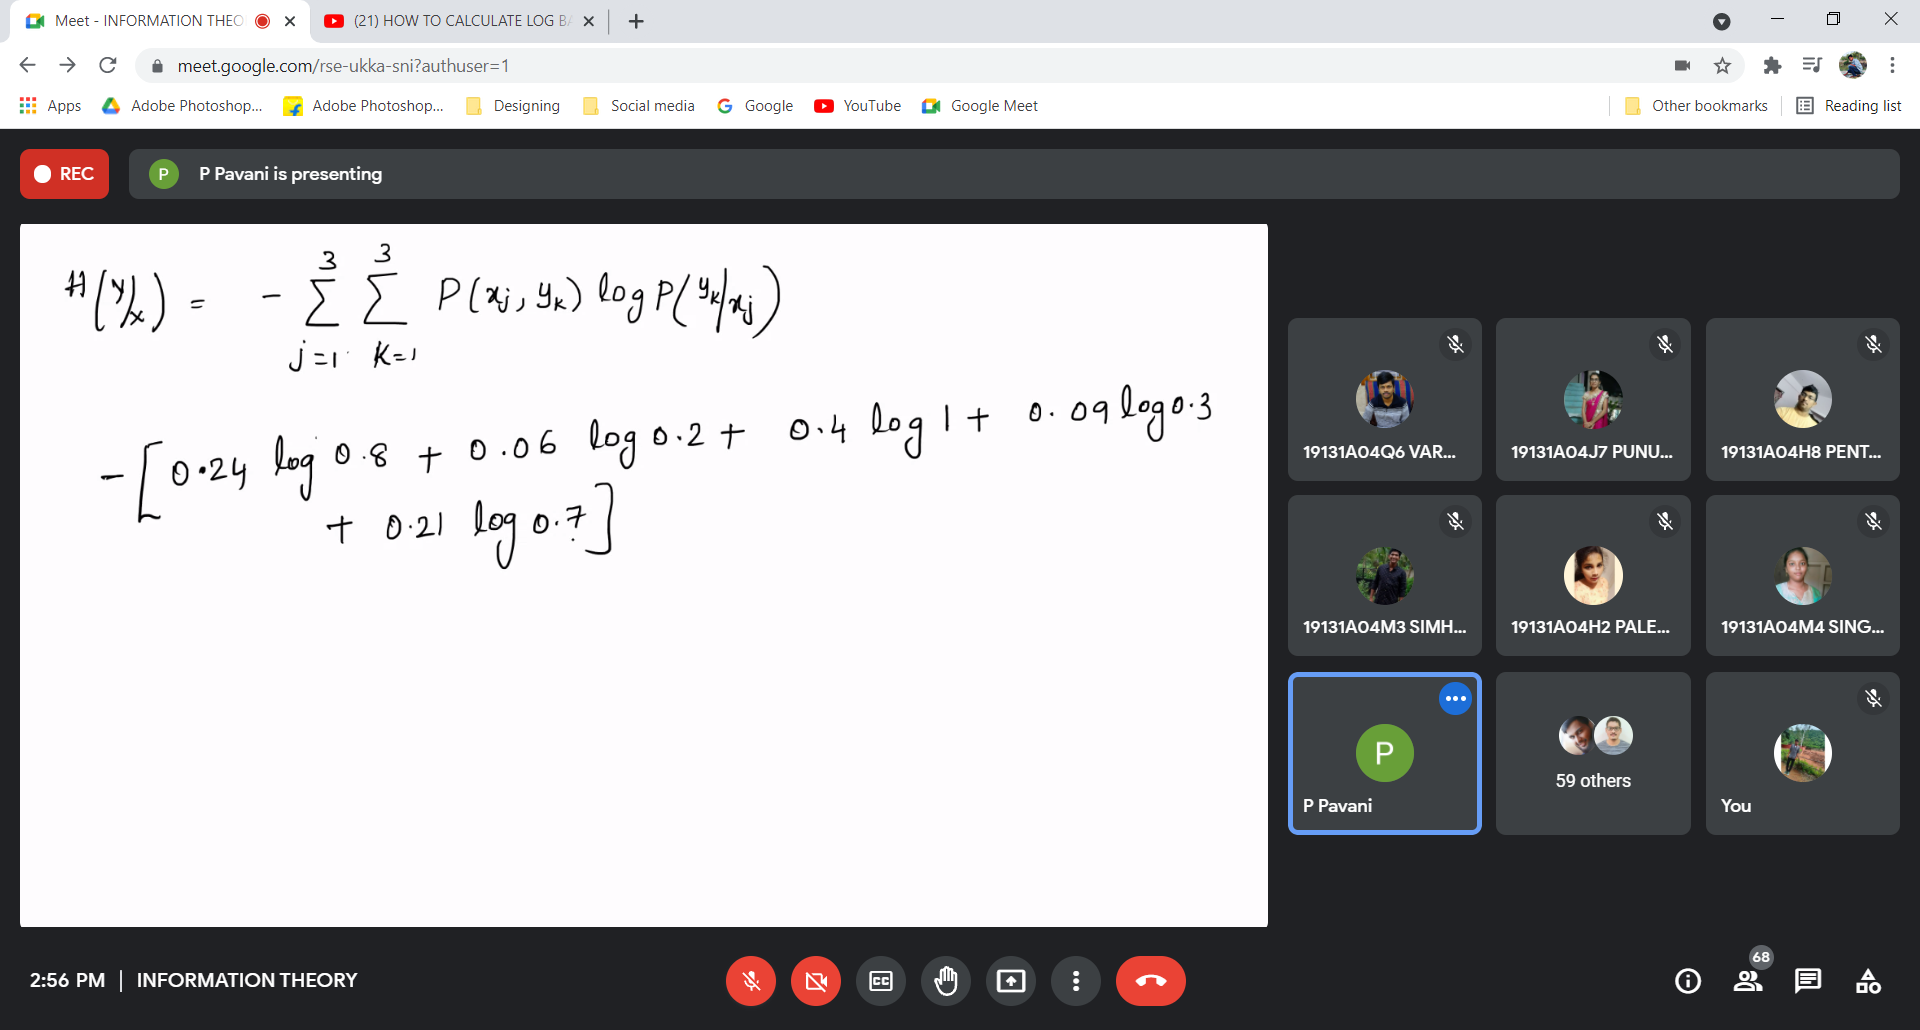 Meet - INFORMATION THEO
(21) HOW TO CALCULATE LOG BA
meet.google.com/rse-ukka-sni?authuser=1
Apps Adobe Photoshop... Adobe Photoshop... Designing Social media Google YouTube Google Meet Other bookmarks Reading list
REC
P P Pavani is presenting
H(Y/X) = - 3∑j=1 3∑k=1 P(xj, yk) log P(yk/xj)
-[0.24 log 0.8 + 0.06 log 0.2 + 0.4 log 1 + 0.09 log 0.3
+ 0.21 log 0.7]
19131A04Q6 VAR... 19131A04J7 PUNU... 19131A04H8 PENT...
19131A04M3 SIMH... 19131A04H2 PALE... 19131A04M4 SING...
P
P Pavani
59 others
You
2:56 PM | INFORMATION THEORY
CC
68